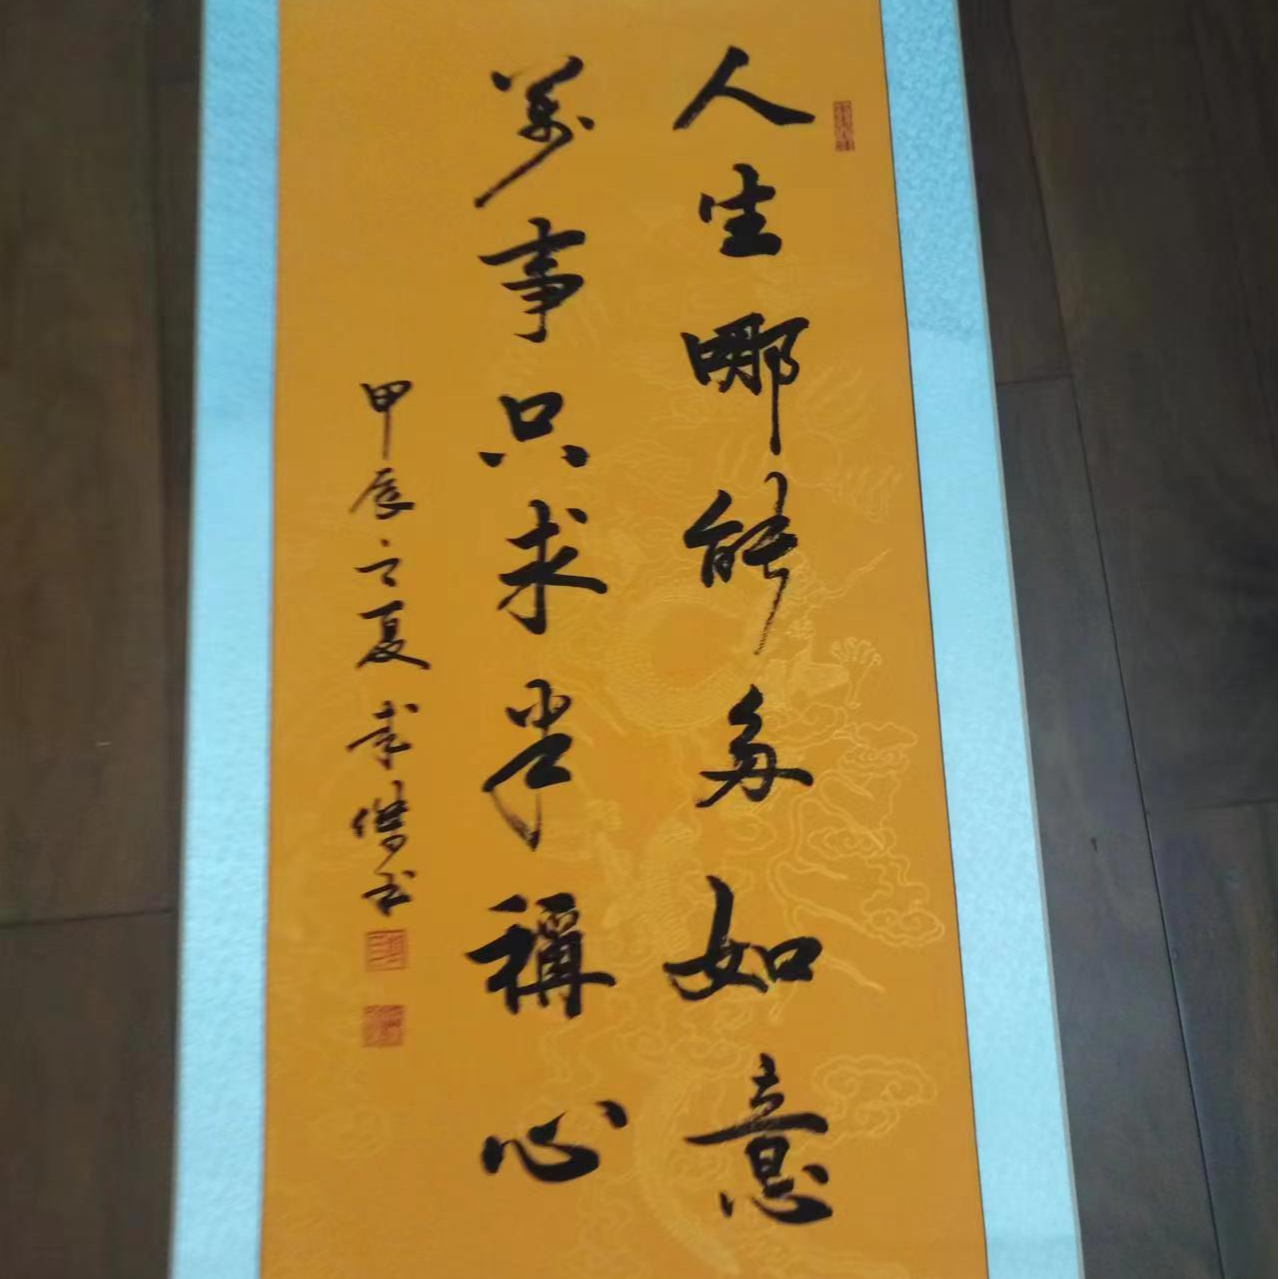 人生哪能多如意
萬事只求半稱心
甲辰之夏李傑书